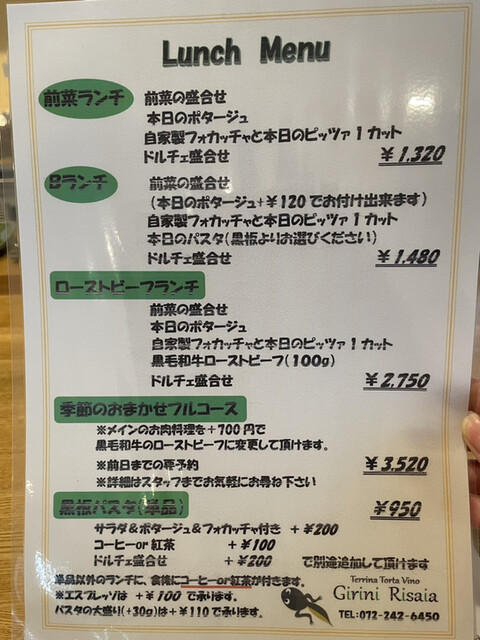 Lunch Menu
前菜ランチ 前菜の盛合せ
本日のポタージュ
自家製フォカッチャと本日のピッツァ1カット
ドルチェ盛合せ ￥1,320
Bランチ 前菜の盛合せ
(本日のポタージュ+￥120でお付け出来ます)
自家製フォカッチャと本日のピッツァ1カット
本日のパスタ(黒板よりお選びください)
ドルチェ盛合せ ￥1,480
ローストビーフランチ
前菜の盛合せ
本日のポタージュ
自家製フォカッチャと本日のピッツァ1カット
黒毛和牛ローストビーフ(100g)
ドルチェ盛合せ ￥2,750
季節のおまかせフルコース
※メインのお肉料理を+700円で
黒毛和牛のローストビーフに変更して頂けます。
※前日までの要予約 ￥3,520
※詳細はスタッフまでお気軽にお尋ね下さい
黒板パスタ(単品) ￥950
サラダ&ポタージュ&フォカッチャ付き +￥200
コーヒーor紅茶 +￥100
ドルチェ盛合せ +￥200 で別途追加して頂けます
単品以外のランチに、食後にコーヒーor紅茶が付きます。
※エスプレッソは +￥100で承ります。
パスタの大盛り(+30g)は+￥110で承ります。
Terrina Torta Vino
Girini Risaia
TEL:072-242-6450